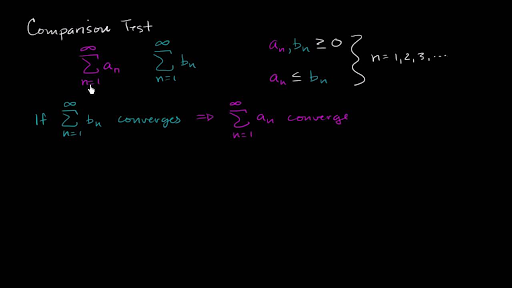 Comparison Test
∞ ∑ n=1 aₙ ∞ ∑ n=1 bₙ aₙ, bₙ ≥ 0
aₙ ≤ bₙ } n = 1, 2, 3, ...
If ∞ ∑ n=1 bₙ converges ⇒ ∞ ∑ n=1 aₙ converge